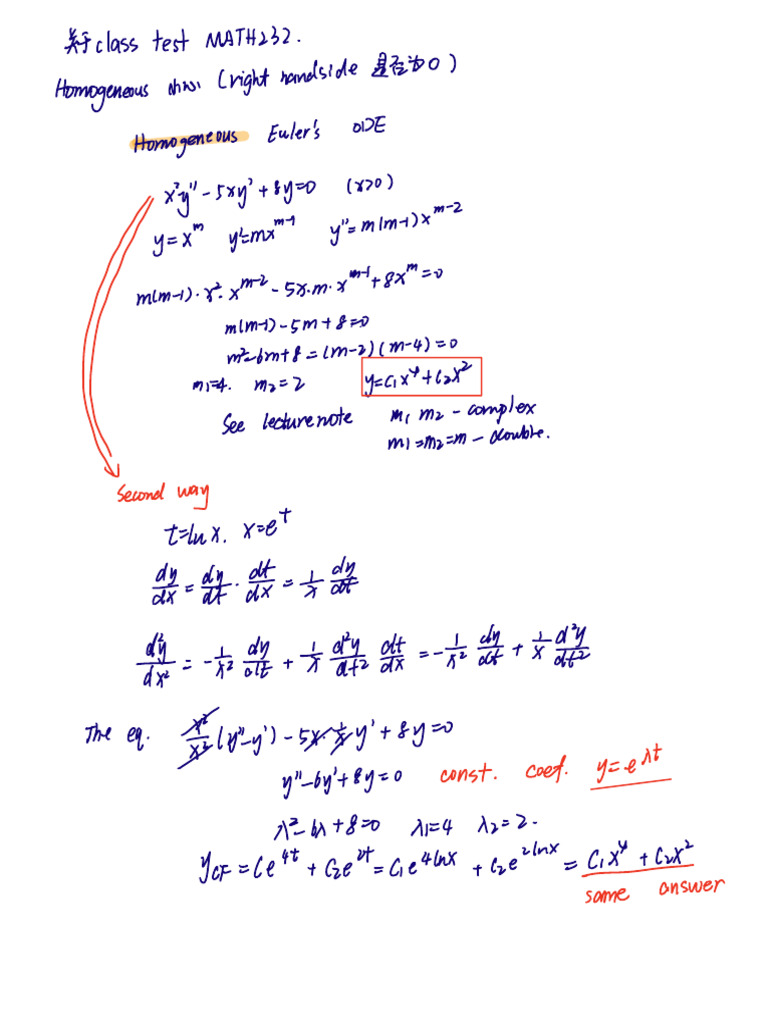 关于class test MATH232.
Homogeneous (right handside 是否为0)
Homogeneous Euler's ODE
x²y'' - 5xy' + 8y=0 (x>0)
y=x^m y'=mx^{m-1} y''=m(m-1)x^{m-2}
m(m-1)·x²·x^{m-2} - 5x·m·x^{m-1} + 8x^m=0
m(m-1) - 5m + 8=0
m²-6m+8 = (m-2)(m-4)=0
m₁=4. m₂=2 y=C₁x⁴+C₂x²
See lecture note m₁ m₂ - complex
m₁=m₂=m - double.
Second way
t=ln x. x=e^t
dy/dx = dy/dt · dt/dx = 1/x dy/dt
d²y/dx² = -1/x² dy/dt + 1/x d²y/dt² dt/dx = -1/x² dy/dt + 1/x d²y/dt²
The eq. x²/x² (y''-y') - 5x·1/x y' + 8y=0
y''-6y'+8y=0 const. coef. y=e^{λt}
λ²-6λ+8=0 λ₁=4 λ₂=2.
y_{CF} = Ce^{4t} + C₂e^{2t} = C₁e^{4lnx} + C₂e^{2lnx} = C₁x⁴ + C₂x²
same answer